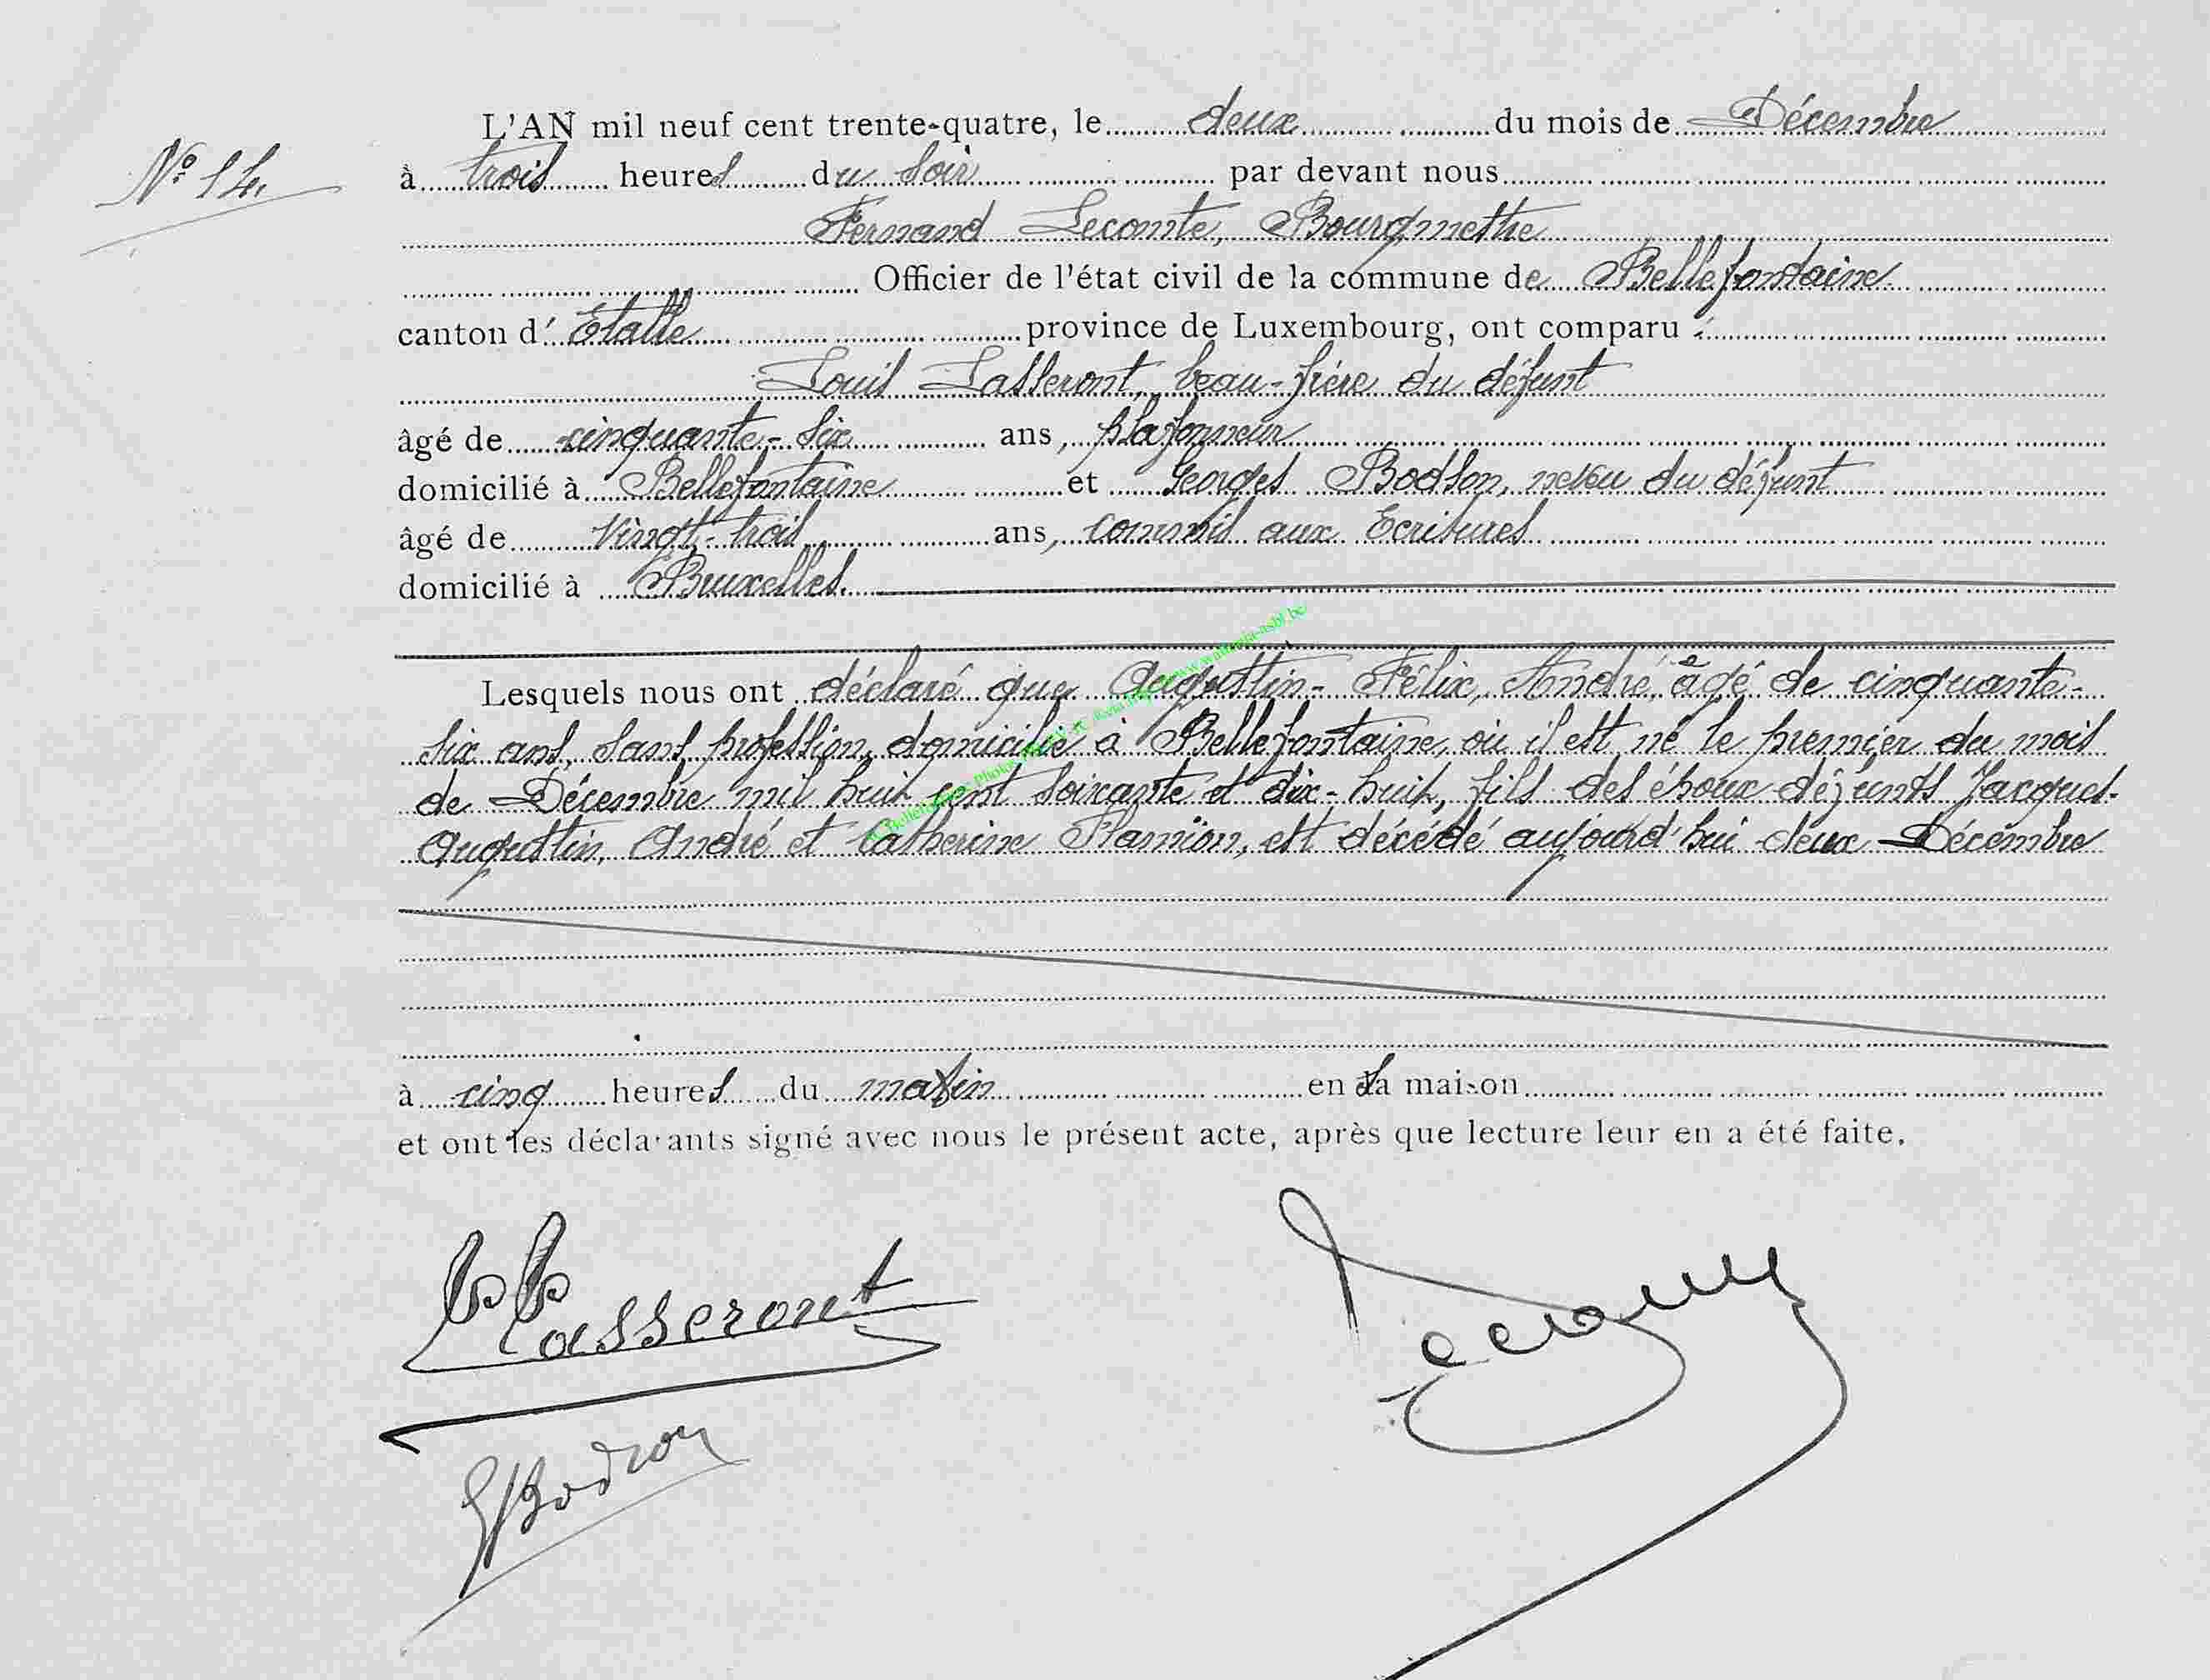 L'AN mil neuf cent trente-quatre, le deux du mois de Décembre
N° 14.
à trois heures du soir par devant nous
Fernand Lecomte, Bourgmestre
Officier de l'état civil de la commune de Bellefontaine
canton d' Etalle province de Luxembourg, ont comparu :
Louis Lasseront, beau-frère du défunt
âgé de cinquante-six ans, plafonneur
domicilié à Bellefontaine et Georges Bodson, neveu du défunt
âgé de vingt-trois ans, commis aux Ecritures
domicilié à Bruxelles.
Lesquels nous ont déclaré que Augustin-Félix, André, âgé de cinquante-
six ans, sans profession, domicilié à Bellefontaine, où il est né le premier du mois
de Décembre mil huit cent soixante et dix-huit, fils des époux défunts Jacques-
Augustin, André et Catherine Flamion, est décédé aujourd'hui deux Décembre
à cinq heures du matin en sa maison
et ont les déclarants signé avec nous le présent acte, après que lecture leur en a été faite.
L Lasseront
G Bodson